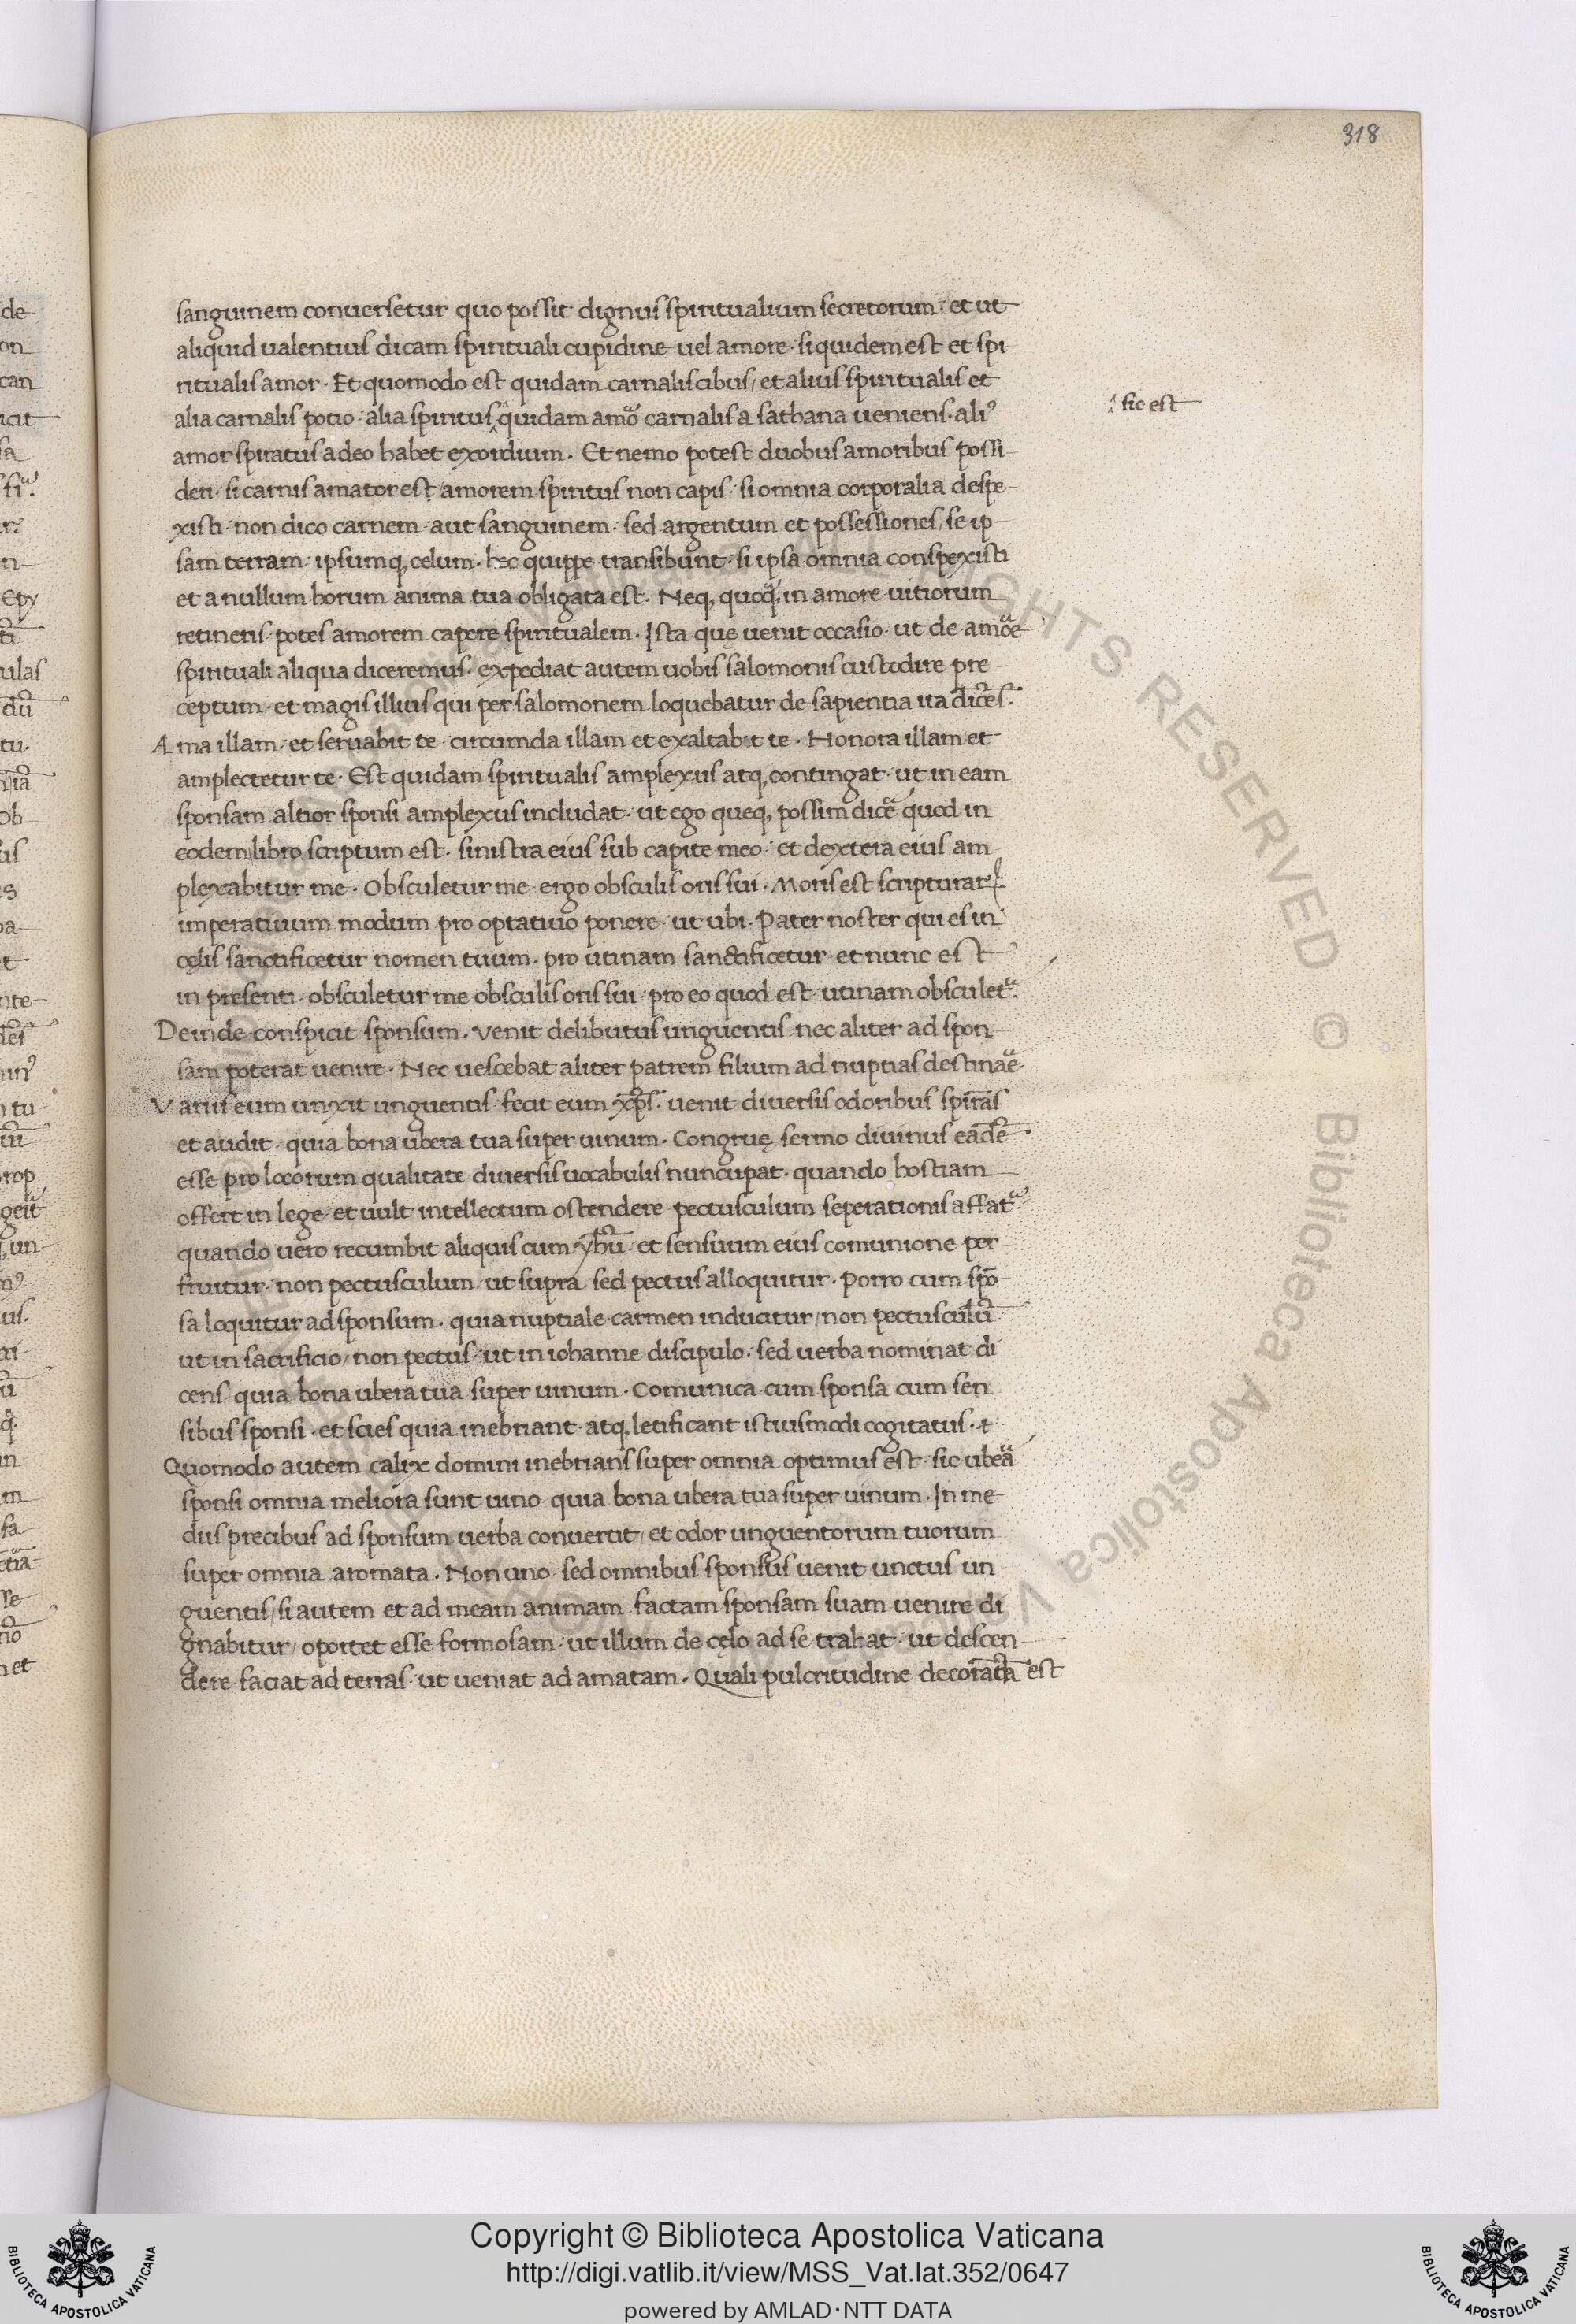 318
sanguinem conuersetur quo possit dignus spiritualium secretorum· et ut
aliquid ualentius dicam spirituali cupidine uel amore· siquidem est et spi
ritualis amor· Et quomodo est quidam carnalis cibus/ et alius spiritualis et
alia carnalis potio· alia spiritus quidam amor carnalis a sathana ueniens· ali⁹
sic est
amor spiritus a deo habet exordium· Et nemo potest duobus amoribus possi
deri· si carnis amator est/ amorem spiritus non capis· si omnia corporalia despe
xisti· non dico carnem· aut sanguinem· sed argentum et possessiones/ se ip
sam terram· ipsumq, celum· hec quippe transibunt· si ipsa omnia conspexisti
et a nullum horum anima tua obligata est· Neq, quoq̃· in amore uitiorum
retineris· potes amorem capere spiritualem· Ista quę uenit occasio· ut de amoᷓe
spirituali aliqua diceremus· expediat autem uobis salomonis custodire pre
ceptum· et magis illius qui per salomonem loquebatur de sapientia ita dicēs·
Ama illam· et seruabit te· circumda illam et exaltabit te· Honora illam et
amplectetur te· Est quidam spiritualis amplexus atq, contingat· ut in eam
sponsam altior sponsi amplexus includat· ut ego queq, possim dicᷓe quod in
eodem libro scriptum est· sinistra eius sub capite meo· et dextera eius am
plexabitur me· Obsculetur me ergo obsculis oris sui· Moris est scripturarꝝ
imperatiuum modum pro optatiuo ponere· ut ubi· Pater noster qui es in
cęlis sanctificetur nomen tuum· pro utinam sanctificetur et nunc est
in presenti· obsculetur me obsculis oris sui· pro eo quod est· utinam obsculetᷓ·
Deinde conspicit sponsum· Venit delibutus unguentis nec aliter ad spon
sam poterat uenire· Nec uescebat aliter patrem filium ad nuptias destinaᷓe·
Variis eum unxit unguentis· fecit eum xp̄s· uenit diuersis odoribus spirās
et audit· quia bona ubera tua super uinum· Congruę sermo diuinus eādē
esse pro locorum qualitate diuersis uocabulis nuncupat· quando hostiam
offert in lege· et uult intellectum ostendere pectusculum seperationis affatᷓ·
quando uero recumbit aliquis cum yhū· et sensuum eius comunione per
fruitur· non pectusculum ut supra· sed pectus alloquitur· Porro cum spō
sa loquitur ad sponsum· quia nuptiale carmen inducitur/ non pectusculū
ut in sacrificio/ non pectus· ut in iohanne discipulo· sed uerba nominat di
cens quia bona ubera tua super uinum· Comunica cum sponsa cum sen
sibus sponsi· et scies quia inebriant· atq, letificant istiusmodi cogitatus·
Quomodo autem calix domini inebrians super omnia optimus est· sic ubeᷓa
sponsi omnia meliora sunt uino quia bona ubera tua super uinum· In me
diis precibus ad sponsum uerba conuertit/ et odor unguentorum tuorum
super omnia aromata· Non uno· sed omnibus sponsus uenit unctus un
guentis/ si autem et ad meam animam factam sponsam suam uenire di
gnabitur/ oportet esse formosam· ut illum de cęlo ad se trahat· ut descen
dere faciat ad terras· ut ueniat ad amatam· Quali pulcritudine decorata est
Copyright © Biblioteca Apostolica Vaticana
http://digi.vatlib.it/view/MSS_Vat.lat.352/0647
powered by AMLAD·NTT DATA